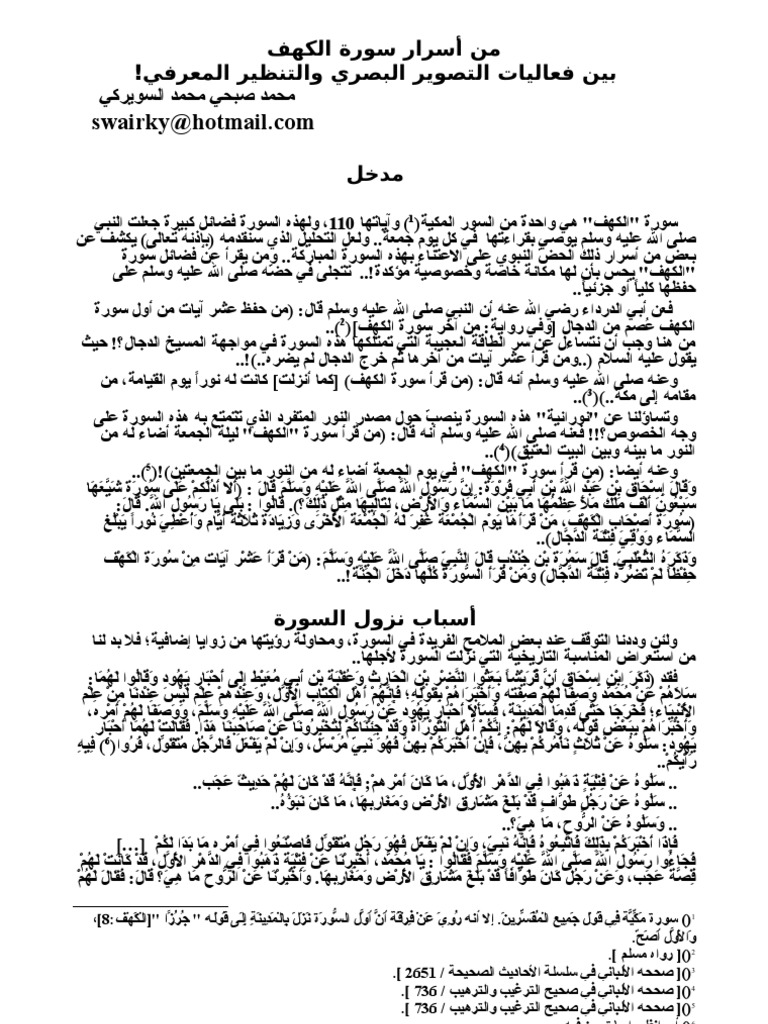 من أسرار سورة الكهف
بين فعاليات التصوير البصري والتنظير المعرفي!
محمد صبحي محمد السويركي
swairky@hotmail.com
مدخل
سورة "الكهف" هي واحدة من السور المكية(1) وآياتها 110، ولهذه السورة فضائل كبيرة جعلت النبي
صلى الله عليه وسلم يوصي بقراءتها في كل يوم جمعة.. ولعل التحليل الذي سنقدمه (بإذنه تعالى) يكشف عن
بعض من أسرار ذلك الحض النبوي على الاعتناء بهذه السورة المباركة.. ومن يقرأ عن فضائل سورة
"الكهف" يحس بأن لها مكانة خاصة وخصوصية مؤكدة!.. تتجلى في حضه صلى الله عليه وسلم على
حفظها كلياً أو جزئياً..
فعن أبي الدرداء رضي الله عنه أن النبي صلى الله عليه وسلم قال: (من حفظ عشر آيات من أول سورة
الكهف عصم من الدجال [وفي رواية: من آخر سورة الكهف](2)..
من هنا وجب أن نتساءل عن سر الطاقة العجيبة التي تمتلكها هذه السورة في مواجهة المسيخ الدجال؟! حيث
يقول عليه السلام (..ومن قرأ عشر آيات من آخرها ثم خرج الدجال لم يضره..)!..
وعنه صلى الله عليه وسلم أنه قال: (من قرأ سورة الكهف) [كما أنزلت] كانت له نوراً يوم القيامة، من
مقامه إلى مكة..)(3)..
وتساؤلنا عن "نورانية" هذه السورة ينصبَ حول مصدر النور المتفرد الذي تتمتع به هذه السورة على
وجه الخصوص؟!! فعنه صلى الله عليه وسلم أنه قال: (من قرأ سورة "الكهف" ليلة الجمعة أضاء له من
النور ما بينه وبين البيت العتيق)(4)..
وعنه أيضا: (من قرأ سورة "الكهف" في يوم الجمعة أضاء له من النور ما بين الجمعتين)!(5)..
وَقَالَ إِسْحَاق بْن عَبْد اللَّه بْن أَبِي فَرْوَة: إِنَّ رَسُول اللَّه صَلَّى اللَّه عَلَيْهِ وَسَلَّمَ قَالَ : (أَلَا أَدُلّكُمْ عَلَى سُورَة شَيَّعَهَا
سَبْعُونَ أَلْف مَلَك مَلَأَ عِظَمُهَا مَا بَيْن السَّمَاء وَالْأَرْض، لِتَالِيهَا مِثْل ذَلِكَ؟). قَالُوا : بَلَى يَا رَسُول اللَّه. قَالَ:
(سُورَة أَصْحَاب الْكَهْف، مَنْ قَرَأَهَا يَوْم الْجُمُعَة غُفِرَ لَهُ الْجُمُعَة الْأُخْرَى وَزِيَادَة ثَلَاثَة أَيَّام وَأُعْطِيَ نُوراً يَبْلُغ
السَّمَاء وَوُقِيَ فِتْنَة الدَّجَّال)..
وَذَكَرَهُ الثَّعْلَبِيّ. قَالَ سَمُرَة بْن جُنْدُب قَالَ النَّبِيّ صَلَّى اللَّه عَلَيْهِ وَسَلَّمَ : (مَنْ قَرَأَ عَشْر آيَات مِنْ سُورَة الْكَهْف
حِفْظاً لَمْ تَضُرّهُ فِتْنَة الدَّجَّال) وَمَنْ قَرَأَ السُّورَة كُلّهَا دَخَلَ الْجَنَّة!..
أسباب نزول السورة
ولئن وددنا التوقف عند بعض الملامح الفريدة في السورة، ومحاولة رؤيتها من زوايا إضافية؛ فلا بد لنا
من استعراض المناسبة التاريخية التي نزلت السورة لأجلها..
فقد (ذَكَرَ اِبْن إِسْحَاق أَنَّ قُرَيْشاً بَعَثُوا النَّضْر بْن الْحَارِث وَعُقْبَة بْن أَبِي مُعَيْط إِلَى أَحْبَار يَهُود وَقَالُوا لَهُمَا:
سَلَاهُمْ عَنْ مُحَمَّد وَصِفَا لَهُمْ صِفَته وَأَخْبِرَاهُمْ بِقَوْلِهِ؛ فَإِنَّهُمْ أَهْل الْكِتَاب الْأَوَّل، وَعِنْدهمْ عِلْم لَيْسَ عِنْدنَا مِنْ عِلْم
الْأَنْبِيَاء؛ فَخَرَجَا حَتَّى قَدِمَا الْمَدِينَة، فَسَأَلَا أَحْبَار يَهُود عَنْ رَسُول اللَّه صَلَّى اللَّه عَلَيْهِ وَسَلَّمَ، وَوَصَفَا لَهُمْ أَمْره،
وَأَخْبَرَاهُمْ بِبَعْضِ قَوْله، وَقَالَا لَهُمْ: إِنَّكُمْ أَهْل التَّوْرَاة وَقَدْ جِئْنَاكُمْ لِتُخْبِرُونَا عَنْ صَاحِبنَا هَذَا. فَقَالَتْ لَهُمَا أَحْبَار
يَهُود: سَلُوهُ عَنْ ثَلَاث نَأْمُركُمْ بِهِنَّ، فَإِنْ أَخْبَرَكُمْ بِهِنَّ فَهُوَ نَبِيّ مُرْسَل، وَإِنْ لَمْ يَفْعَل فَالرَّجُل مُتَقَوِّل، فَرُوا(6) فِيهِ
رَأْيكُمْ..
.. سَلُوهُ عَنْ فِتْيَةٍ ذَهَبُوا فِي الدَّهْر الْأَوَّل، مَا كَانَ أَمْرهمْ: فَإِنَّهُ قَدْ كَانَ لَهُمْ حَدِيث عَجَب..
.. سَلُوهُ عَنْ رَجُلٍ طَوَّافٍ قَدْ بَلَغَ مَشَارِق الْأَرْض وَمَغَارِبهَا، مَا كَانَ نَبَؤُهُ..
.. وَسَلُوهُ عَنْ الرُّوح، مَا هِيَ؟..
فَإِذَا أَخْبَرَكُمْ بِذَلِكَ فَاتَّبِعُوهُ فَإِنَّهُ نَبِيّ، وَإِنْ لَمْ يَفْعَل فَهُوَ رَجُل مُتَقَوِّل فَاصْنَعُوا فِي أَمْره مَا بَدَا لَكُمْ [...]
فَجَاءُوا رَسُول اللَّه صَلَّى اللَّه عَلَيْهِ وَسَلَّمَ فَقَالُوا : يَا مُحَمَّد، أَخْبِرْنَا عَنْ فِتْيَة ذَهَبُوا فِي الدَّهْر الْأَوَّل، قَدْ كَانَتْ لَهُمْ
قِصَّة عَجَب، وَعَنْ رَجُل كَانَ طَوَّافاً قَدْ بَلَغَ مَشَارِق الْأَرْض وَمَغَارِبهَا. وَأَخْبِرْنَا عَنْ الرُّوح مَا هِيَ؟ قَالَ: فَقَالَ لَهُمْ
1() سورة مَكِّيَّة فِي قَوْل جَمِيع الْمُفَسِّرِينَ. إلا أنه رُوِيَ عَنْ فِرْقَة أَنَّ أَوَّل السُّورَة نَزَلَ بِالْمَدِينَةِ إِلَى قَوْله "جُرُزًا" [الكهف:8]،
وَالْأَوَّل أَصَحّ.
2()[ رواه مسلم ].
3()[ صححه الألباني في سلسلة الأحاديث الصحيحة / 2651 ].
4()[ صححه الألباني في صحيح الترغيب والترهيب / 736 ].
5()[ صححه الألباني في صحيح الترغيب والترهيب / 736 ].